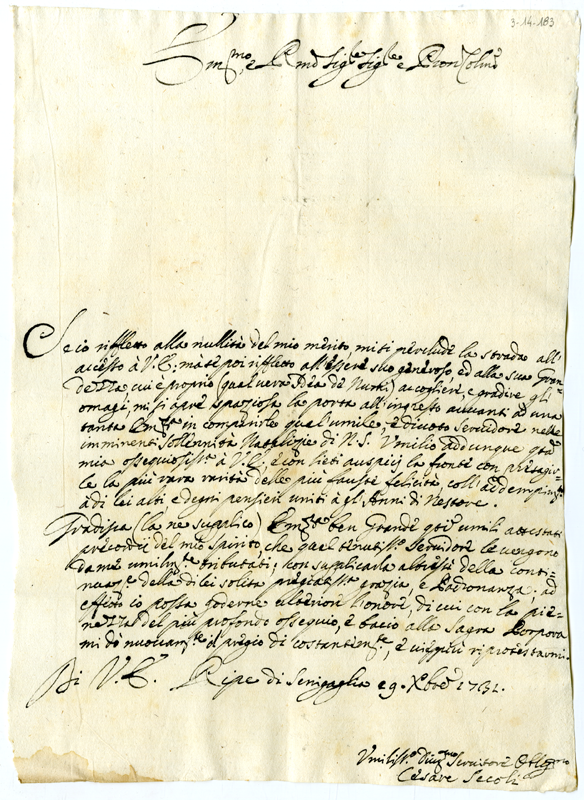 3-14-183
Em.mo, e R.mo Sig.re Sig.re e Pron Col.mo
Se io rifletto alla nullità del mio merito, mi si preclude la strada all'
accesso à V. E.; mà se poi rifletto all'essere suo generoso ed alla sua Gran-
dezza cui è proprio (qual vera Dea de Nurti) accogliere, e gradire gli
omagi, mi si apre spaziosa la porta all'ingresso avvanti di una
tanta Em.za in comparirle qual umile, e divoto Servidore nelle
imminenti sollennità Natalizie di N. S. Umilio addunque q.ta
mia ossequiosiss.a à V. E. e con lieti auspicij la fronte con presagir-
le la più vera varietà delle più fauste felicità coll' addempim.to
à di lei alti e degni pensieri uniti à gl' Anni di Nestore.
Gradisca (la ne supplico) Em.za ben Grande q.ti umili attestati
precordij del mio spirito, che qual tenuiss.o Servidore le vengono
da me umilm.te tributati; con suplicarla altresì della conti-
nuaz.e della di lei solita pregiatiss.a grazia e Padronanza; ad
effetto io possa goderne ulteriori honori, di cui con la pie-
nezza del più profondo ossequio, e bacio alla Sagra Porpora
mi dò nuovam.te il pregio di costantem.te, e viepiù riprotestarmi.
Di V. E. Ripe di Senigaglia e 9. Xbre 1731.
Umiliss.o Div.mo Servitore Oblig.mo
Cesare Secoli